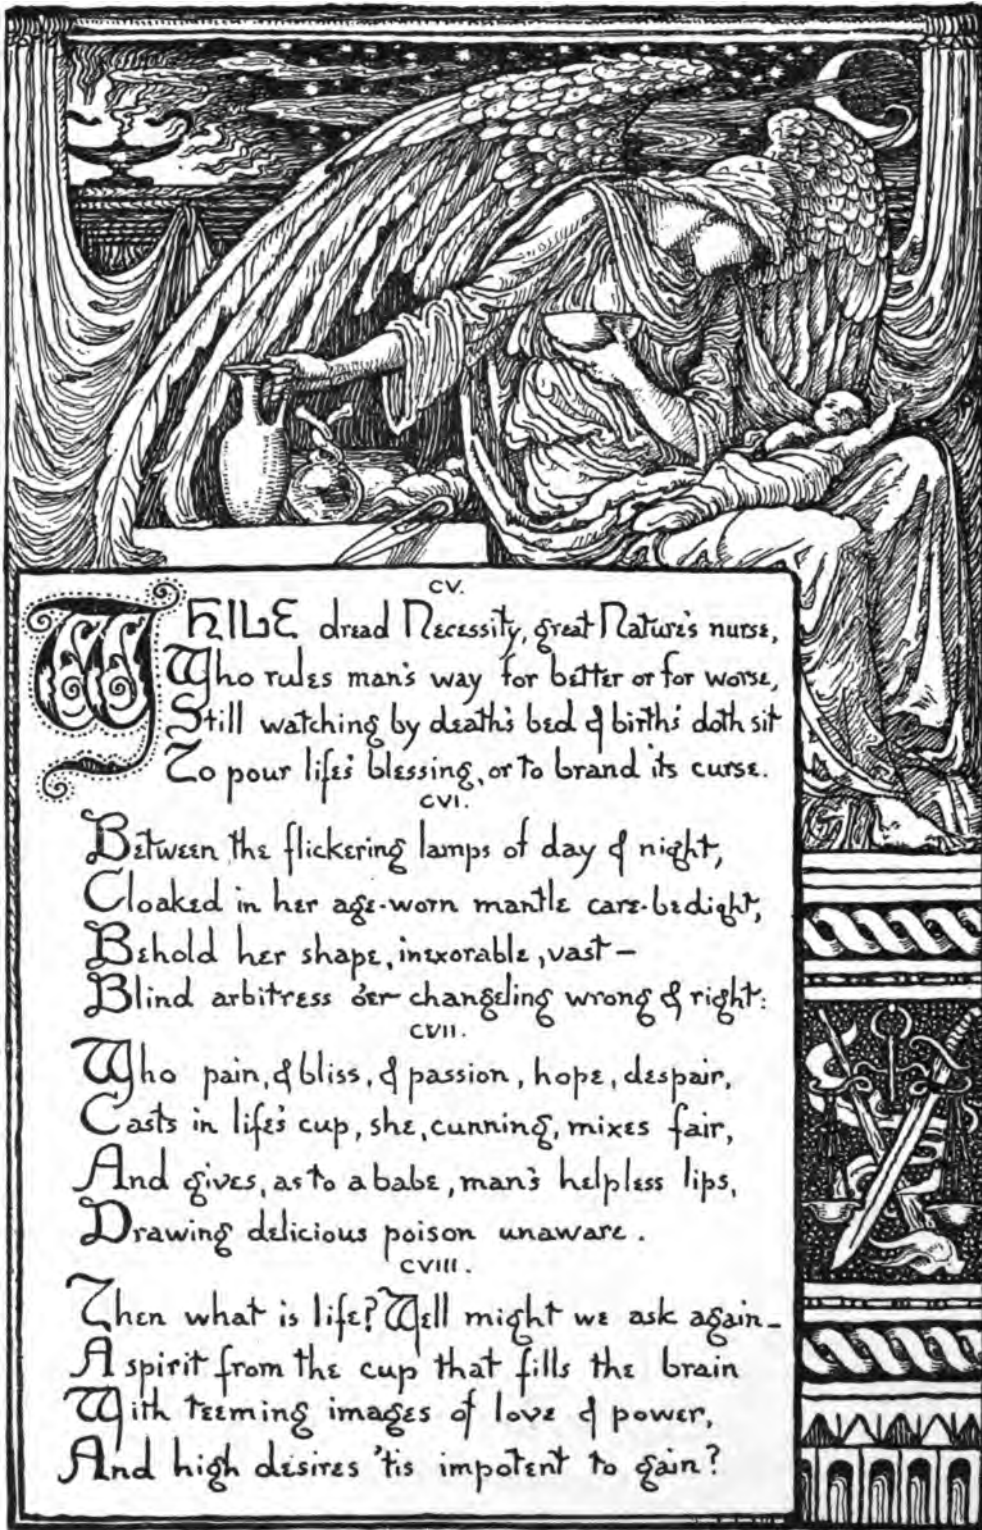 CV.
WHILE dread Necessity, great Nature's nurse,
Who rules man's way for better or for worse,
Still watching by death's bed & births' doth sit
To pour life's blessing, or to brand its curse.
CVI.
Between the flickering lamps of day & night,
Cloaked in her age-worn mantle care-bedight,
Behold her shape, inexorable, vast –
Blind arbitress o'er changeling wrong & right:
CVII.
Who pain, & bliss, & passion, hope, despair,
Casts in life's cup, she, cunning, mixes fair,
And gives, as to a babe, man's helpless lips,
Drawing delicious poison unaware.
CVIII.
Then what is life? Well might we ask again –
A spirit from the cup that fills the brain
With teeming images of love & power,
And high desires 'tis impotent to gain?